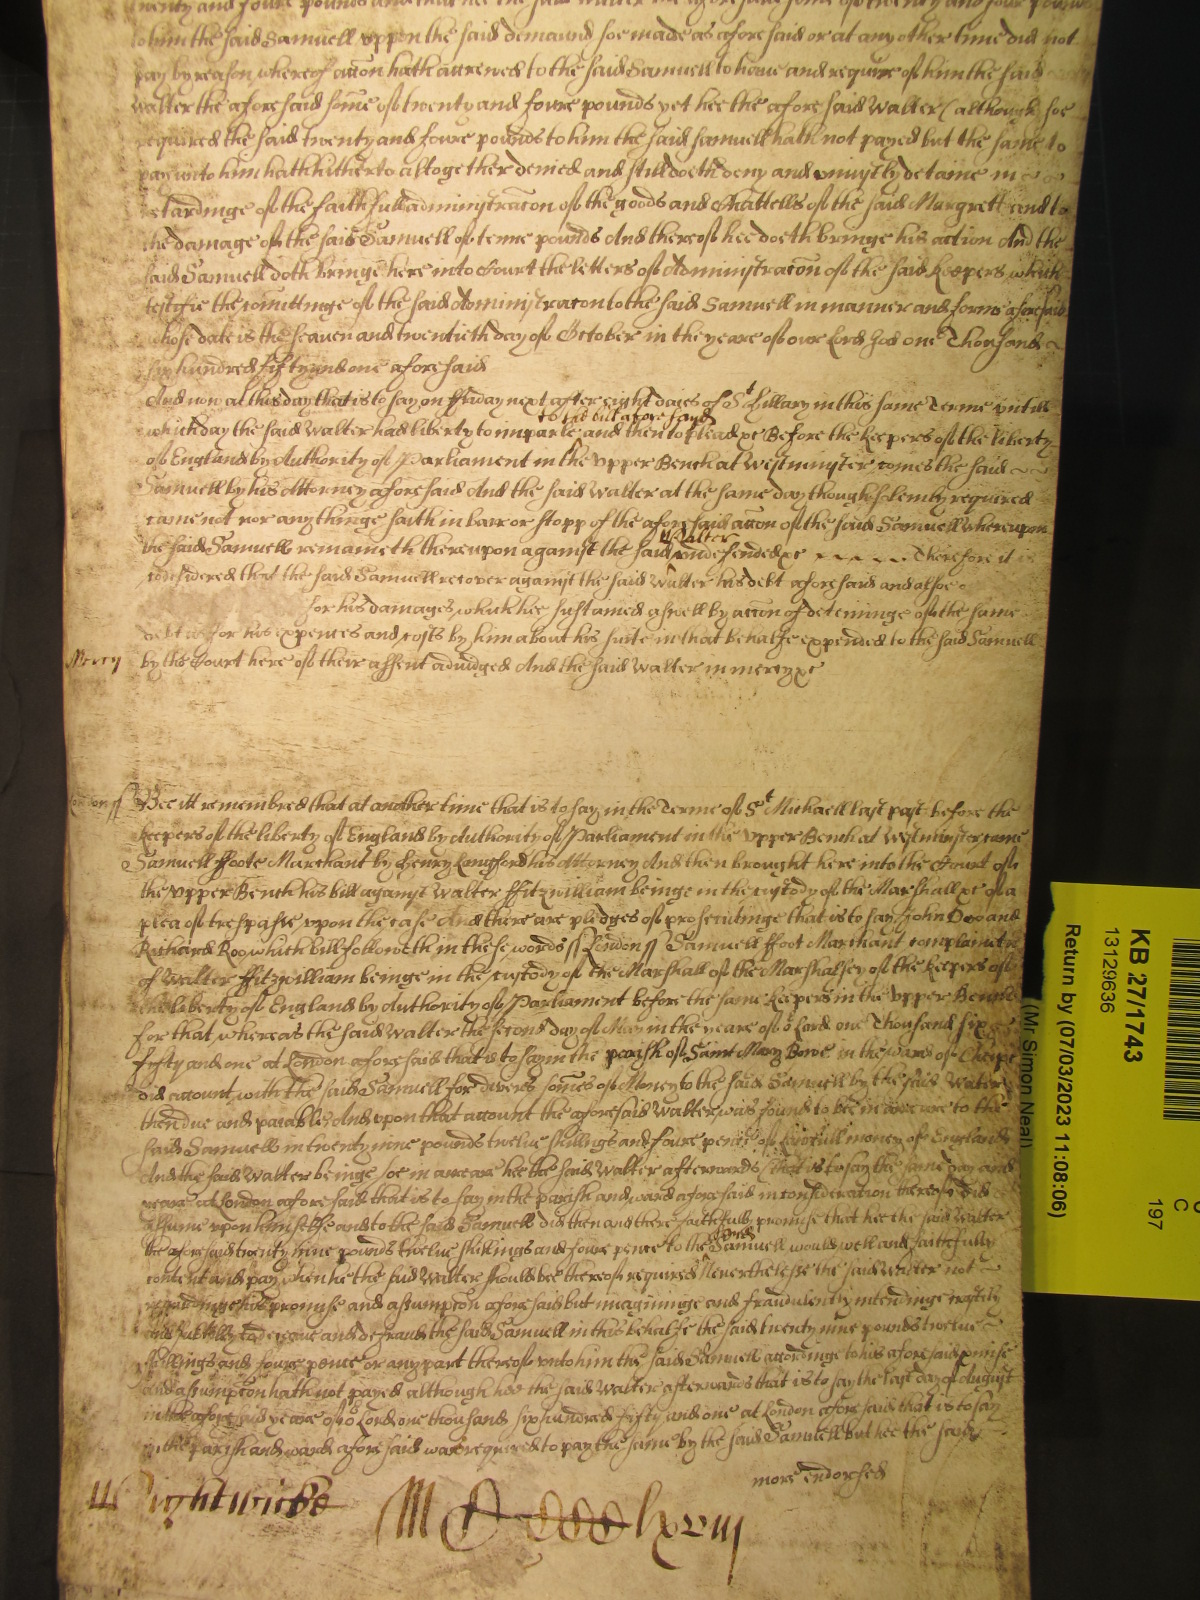 twenty and foure pounds and that hee the said Walter the aforesaid some of twenty and foure pounds
to him the said Samuell uppon the said demaund soe made as aforesaid or at any other time did not
pay by reason whereof accon hath accrewed to the said Samuell to have and require of him the said
Walter the aforesaid some of twenty and foure pounds yet hee the aforesaid Walter (although soe
required the said twenty and foure pounds to him the said Samuell hath not payed but the same to
pay unto him hath hitherto altogether denied and still doeth deny and uniustly detaine in
retardinge of the faithfull administracon of the goods and Chattells of the said Margrett and to
the damage of the said Samuell of tenne pounds And thereof hee doeth bringe his action And the
said Samuell doth bringe here into Court the letters of Administracon of the said Keepers which
testifie the comittinge of the said Administracon to the said Samuell in manner and forme aforesaid
whose date is the seaven and twentieth day of October in the yeare of our Lord God one Thousand
six hundred fifty and one aforesaid
And now at this day that is to say on ffriday next after eight daies of St Hillary in this same Terme untill
which day the said Walter had liberty to imparle to the bill aforesayd and then to plead &c Before the Keepers of the liberty
of England by Authority of Parliament in the upper Bench at Westminster comes the said
Samuell by his Attorney aforesaid And the said Walter at the same day though solemly required
came not nor any thinge saith in barr or stopp of the aforesaid accon of the said Samuell whereupon
the said Samuell remaineth thereupon against the said Walter undefended &c Therefore it is
considered that the said Samuell recover against the said Walter his debt aforesaid and alsoe
for his damages which hee sustained aswell by accon of deteininge of the same
debt as for his expences and costs by him about his suite in that behalfe expended to the said Samuell
Mercy by the Court here of their assent adiudged And the said Walter in mercy &c
London ss Bee itt remembred that at another time that is to say in the Terme of St Michaell last past before the
Keepers of the liberty of England by Authority of Parliament in the upper Bench at Westminster came
Samuell ffoote Marchant by Henry Longford his Attorney And then brought here into the Court of
the upper Bench his bill against Walter ffitzwilliam beinge in the custody of the Marshall &c of a
plea of trespasse upon the case And there are pledges of prosecutinge that is to say John Doo and
Richard Roo which bill followeth in these words ss London ss Samuell ffoot Marchant complaineth
of Walter ffitzwilliam beinge in the custody of the Marshall of the Marshalsey of the Keepers of
the liberty of England by Authority of Parliament before the same Keepers in the upper Bench
for that whereas the said Walter the second day of May in the yeare of or Lord one Thousand six
fifty and one at London aforesaid that is to say in the parish of Saint Mary Bowe in the ward of Cheape
did account with the said Samuell for divers somes of Money to the said Samuell by the said Walter
then due and paiable And upon that account the aforesaid Walter was found to bee in arreare to the
said Samuell in twenty nine pounds twelve shillings and foure pence of lawfull money of England
And the said Walter beinge soe in arreare hee the said Walter afterwards that is to say the same day and
yeare at London aforesaid that is to say in the parish and ward aforesaid in consideracion thereof did
assume upon himselfe and to the said Samuell did then and there faithfully promise that hee the said Walter
the aforesaid twenty nine pounds twelve shillings and foure pence to the aforesaid Samuell would well and faithfully
content and pay when he the said Walter should bee thereof required Neverthelesse the said Walter not
regardinge his promise and assumpcon aforesaid but imagininge and fraudulently intendinge craftily
and subtilly to deceave and defraud the said Samuell in this behalfe the said twenty nine pounds twelve
shillings and foure pence or any part thereof unto him the said Samuell accordinge to his aforesaid promise
and assumpcon hath not payed although hee the said Walter afterwards that is to say the last day of August
in the aforesaid yeare of or Lord one thousand six hundred fyfty and one at London aforesaid that is to say
in the parish and ward aforesaid was required to pay the same by the said Samuell but hee the said
more endorsed
Wightwicke MDCCCClxviij
KB 27/1743
13129636
Return by (07/03/2023 11:08:06)
(Mr Simon Neal)
197
C